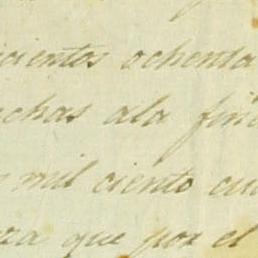 cientos ochenta
chas ala fin
mil ciento cu
za que por el